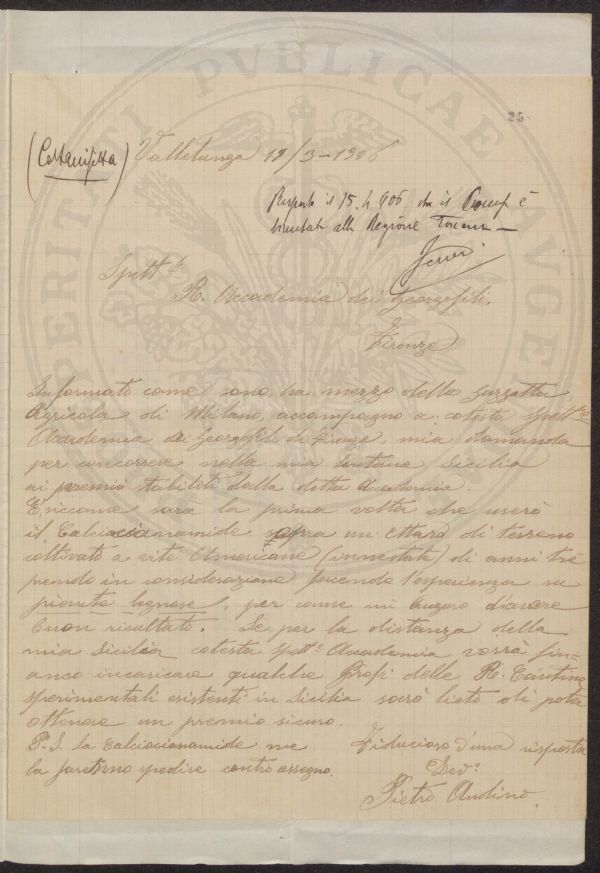 25
(Caltanisetta) Vallelunga 19/3-1906
Risposto il 15.4.906 che il Comp è
limitato alla Regione Toscana —
Spett.le
R. Accademia dei Georgofili.
Firenze
Informato come sono, ha mezzo della Gazzetta
Agricola di Milano, accompagno a cotesta Spett.le
Accademia dei Georgofili di Firenze, mia domanda
per concorrere nella mia lontana Sicilia
ai premio stabiliti dalla detta Accademia.
E siccome sarà la prima volta che userò
il Calciocianamide sopra un Ettaro di terreno
coltivato a vite Americane (innestate) di anni tre
prendo in considerazione facendo l'esperienza su
pionete legnose, per come mi auguro d'avere
buon risultato. Se per la distanza della
mia Sicilia cotesta Spett.e Accademia vorrà fin-
anco incaricare qualche Prof. delle R. Cantine
sperimentali esistenti in Sicilia sarò lieto di poter
ottenere un premio sicuro.
P.S. la Calciocianamide me
la faretnno spedire contro assegno.
Fiducioso d'una risposta
Dev.o
Pietro Audino.
PERITATI PVBLICAE AVGEN